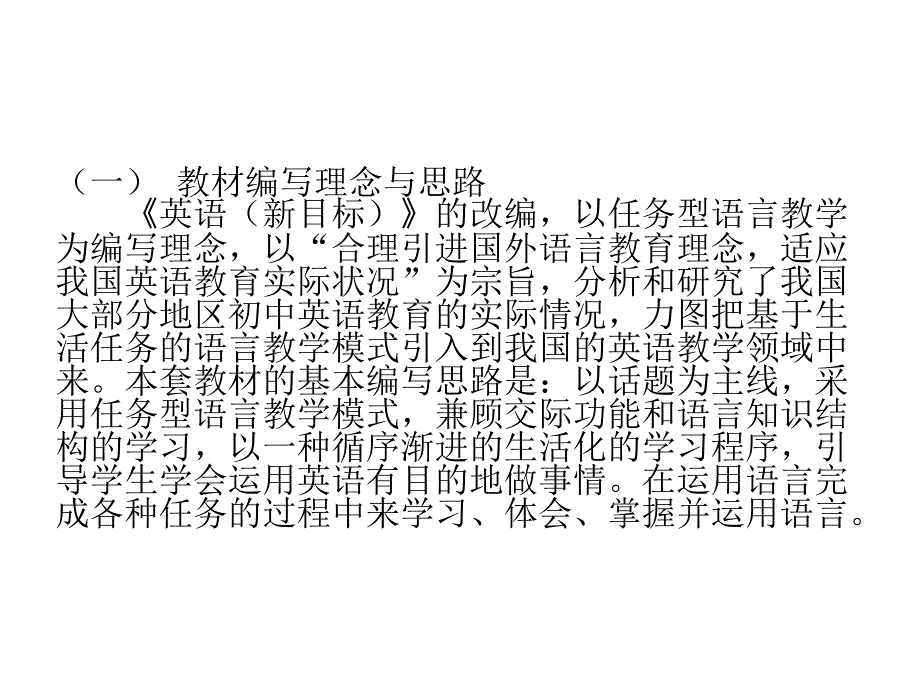 （一） 教材编写理念与思路
《英语（新目标）》的改编，以任务型语言教学
为编写理念，以“合理引进国外语言教育理念，适应
我国英语教育实际状况”为宗旨，分析和研究了我国
大部分地区初中英语教育的实际情况，力图把基于生
活任务的语言教学模式引入到我国的英语教学领域中
来。本套教材的基本编写思路是：以话题为主线，采
用任务型语言教学模式，兼顾交际功能和语言知识结
构的学习，以一种循序渐进的生活化的学习程序，引
导学生学会运用英语有目的地做事情。在运用语言完
成各种任务的过程中来学习、体会、掌握并运用语言。